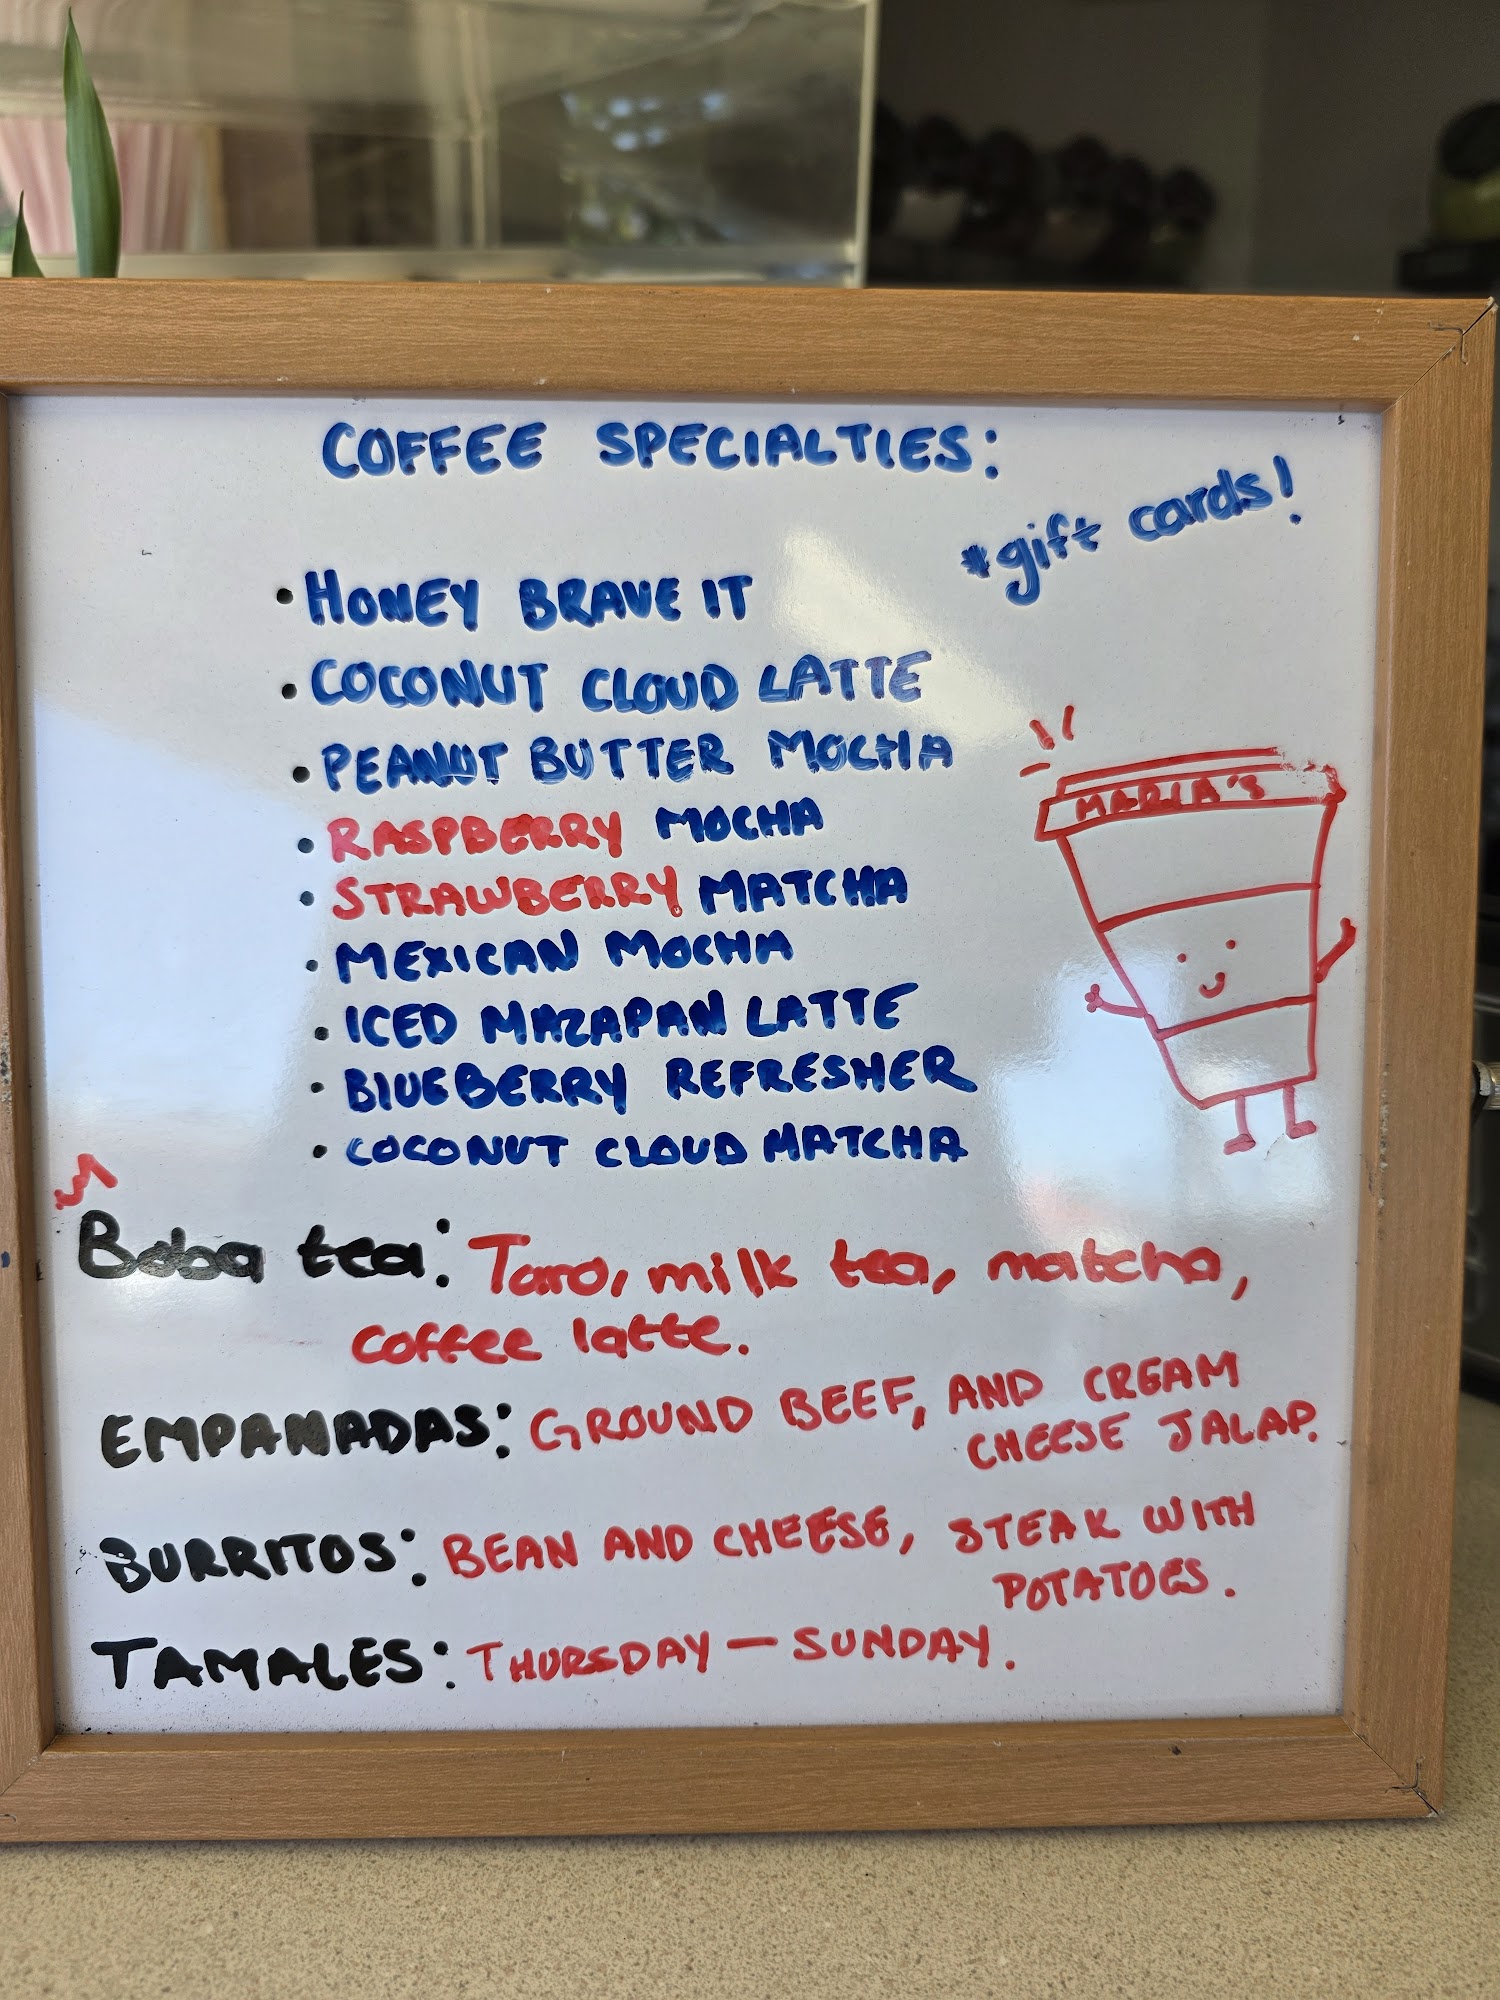 COFFEE SPECIALTIES:
*gift cards!
• HONEY BRAVE IT
• COCONUT CLOUD LATTE
• PEANUT BUTTER MOCHA
• RASPBERRY MOCHA
• STRAWBERRY MATCHA
• MEXICAN MOCHA
• ICED MAZAPAN LATTE
• BLUEBERRY REFRESHER
• COCONUT CLOUD MATCHA
MARIA'S
Boba tea: Taro, milk tea, matcha,
coffee latte.
EMPANADAS: GROUND BEEF, AND CREAM
CHEESE JALAP.
BURRITOS: BEAN AND CHEESE, STEAK WITH
POTATOES.
TAMALES: THURSDAY — SUNDAY.